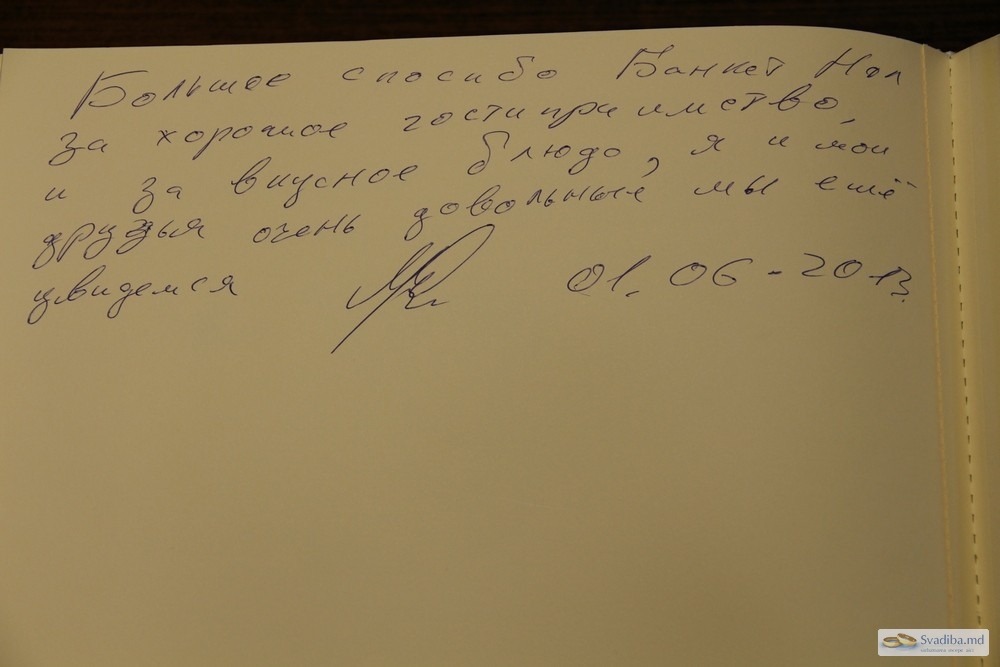 Большое спосибо Банкет Нол
за хорошое гостиприимство,
и за вкусное блюдо, я и мои
друзья очень довольные мы ешё
увидемся 01.06-2013.
Svadiba.md